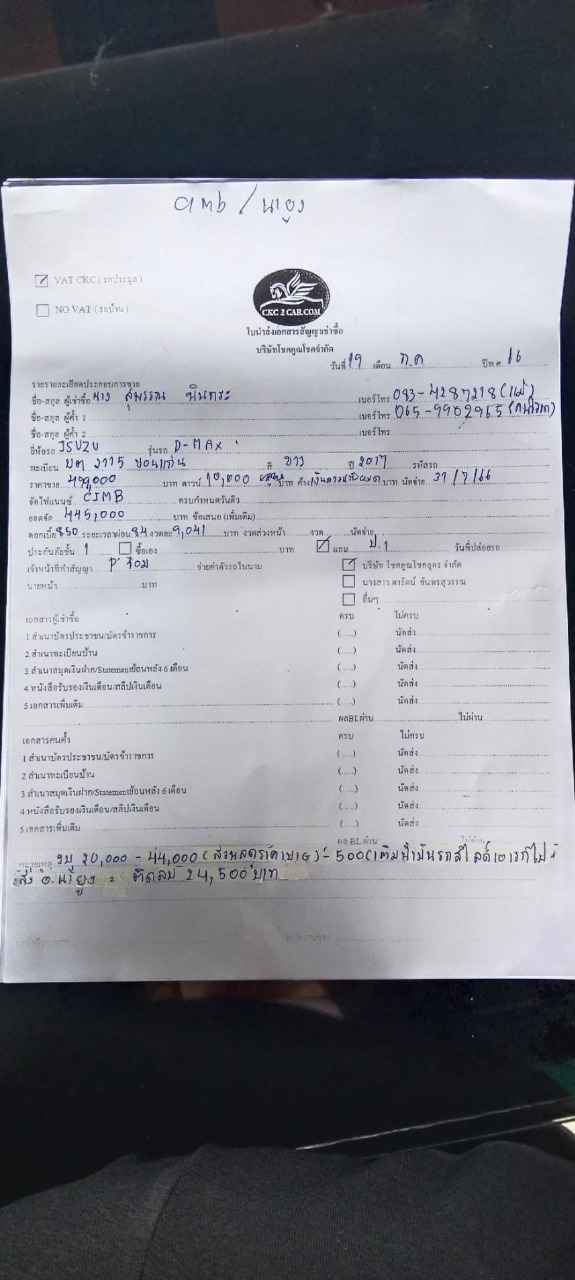 cimb / นายูง
☑ VAT CKC (รถประมูล)
☐ NO VAT (รถบ้าน)
CKC 2 CAR.COM
ใบนำส่งเอกสารสัญญาเช่าซื้อ
บริษัทโชคคูณโชคจำกัด
วันที่ 19 เดือน ก.ค ปีพ.ศ. 66
รายรายละเอียดประกอบการขาย
ชื่อ-สกุล ผู้เช่าซื้อ นาง สุพรรณ เบอร์โทร 093-4287218 (แม่)
ชื่อ-สกุล ผู้ค้ำ 1 เบอร์โทร 065-9902965
ชื่อ-สกุล ผู้ค้ำ 2 เบอร์โทร
ยี่ห้อรถ ISUZU รุ่นรถ D-MAX
ทะเบียน 2775 ขอนแก่น สี ขาว ปี 2017 รหัสรถ
ราคาขาย บาท ดาวน์ 10,000 บาท ค้าง บาท นัดจ่าย 31/7/66
จัดไฟแนนซ์ CIMB ครบกำหนดวันคิว
ยอดจัด 445,000 บาท ข้อเสนอ (เพิ่มเติม)
ดอกเบี้ย 850 ระยะเวลาผ่อน 84 งวดละ 9,041 บาท งวดล่วงหน้า งวด นัดจ่าย
ประกันภัยชั้น 1 ☐ ซื้อเอง บาท ☑ แถม ป.1 วันที่ปล่อยรถ
เจ้าหน้าที่ทำสัญญา P' จ่ายค่าตัวรถในนาม ☑ บริษัท โชคคูณโชคอุดร จำกัด
นายหน้า บาท ☐ นางสาว ดารัตน์ จันทรสุวรรณ
☐ อื่นๆ
เอกสารผู้เช่าซื้อ ครบ ไม่ครบ
1.สำเนาบัตรประชาชน/บัตรข้าราชการ (.....) นัดส่ง
2.สำเนาทะเบียนบ้าน (.....) นัดส่ง
3.สำเนาสมุดเงินฝาก/Statementย้อนหลัง 6 เดือน (.....) นัดส่ง
4.หนังสือรับรองเงินเดือน/สลิปเงินเดือน (.....) นัดส่ง
5.เอกสารเพิ่มเติม (.....) นัดส่ง
ผลBL ผ่าน ไม่ผ่าน
เอกสารคนค้ำ ครบ ไม่ครบ
1 สำเนาบัตรประชาชน/บัตรข้าราชการ (.....) นัดส่ง
2 สำเนาทะเบียนบ้าน (.....) นัดส่ง
3.สำเนาสมุดเงินฝาก/Statementย้อนหลัง 6 เดือน (.....) นัดส่ง
4 หนังสือรับรองเงินเดือน/สลิปเงินเดือน (.....) นัดส่ง
5.เอกสารเพิ่มเติม (.....) นัดส่ง
ผล BL ผ่าน ไม่ผ่าน
หมายเหตุ งบ 20,000 - 44,000 (ส่วนลดราคาขาย) - 500 (เติมน้ำมันรถสไลด์เอารถไป
ส่ง อ.นายูง = ติดลบ 24,500 บาท